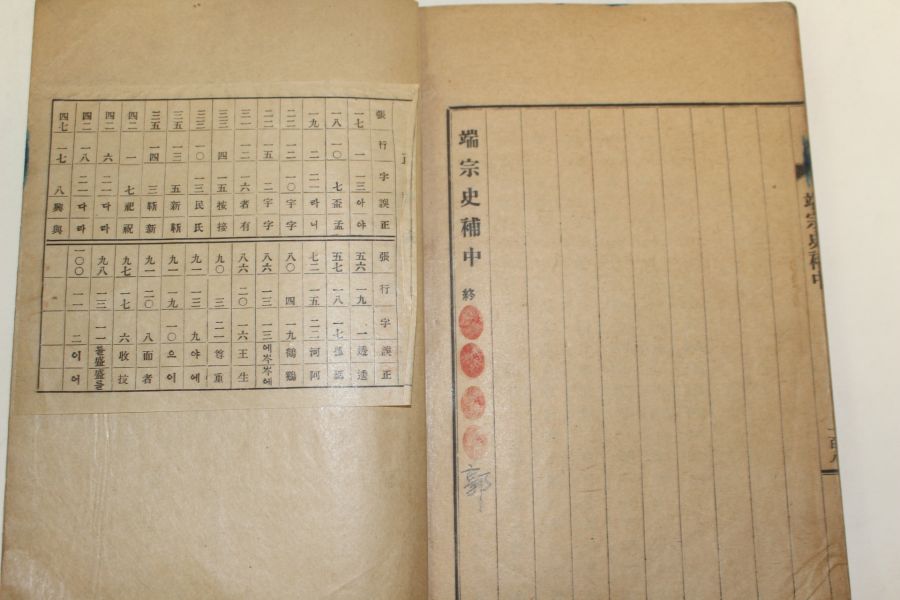 端宗史補中
一百八
端宗史補中 終
郭
正
張 行 字 誤 正
一七 一 一三 아 야
一八 一〇 七 盃 孟
一九 二 二一 라 니
二二 一〇 宇 字
二二 一五 二 宇 字
三一 一二 一六 者 有
三三 四 一五 按 接
三三 一〇 一三 民 氏
三五 一三 五 新 斬
三五 一四 三 斬 新
四二 一 七 祀 祝
四二 六 二一 다 라
四二 一八 二一 다 라
四七 一七 八 興 與
張 行 字 誤 正
五六 一九 一 透
五七 一八 一七
七二 一五 二二 河 阿
八〇 四 一九 鶴 鷄
八六 一三 一三 에岑 岑에
八六 二〇 一六 王 生
九〇 三 二一 重
九一 一三 九 야 에
九一 一九 一〇 으 이
九一 二〇 八 面 者
九七 一七 六 收 技
九八 一三 一一 들盛 盛들
一〇〇 一一 二 이 어